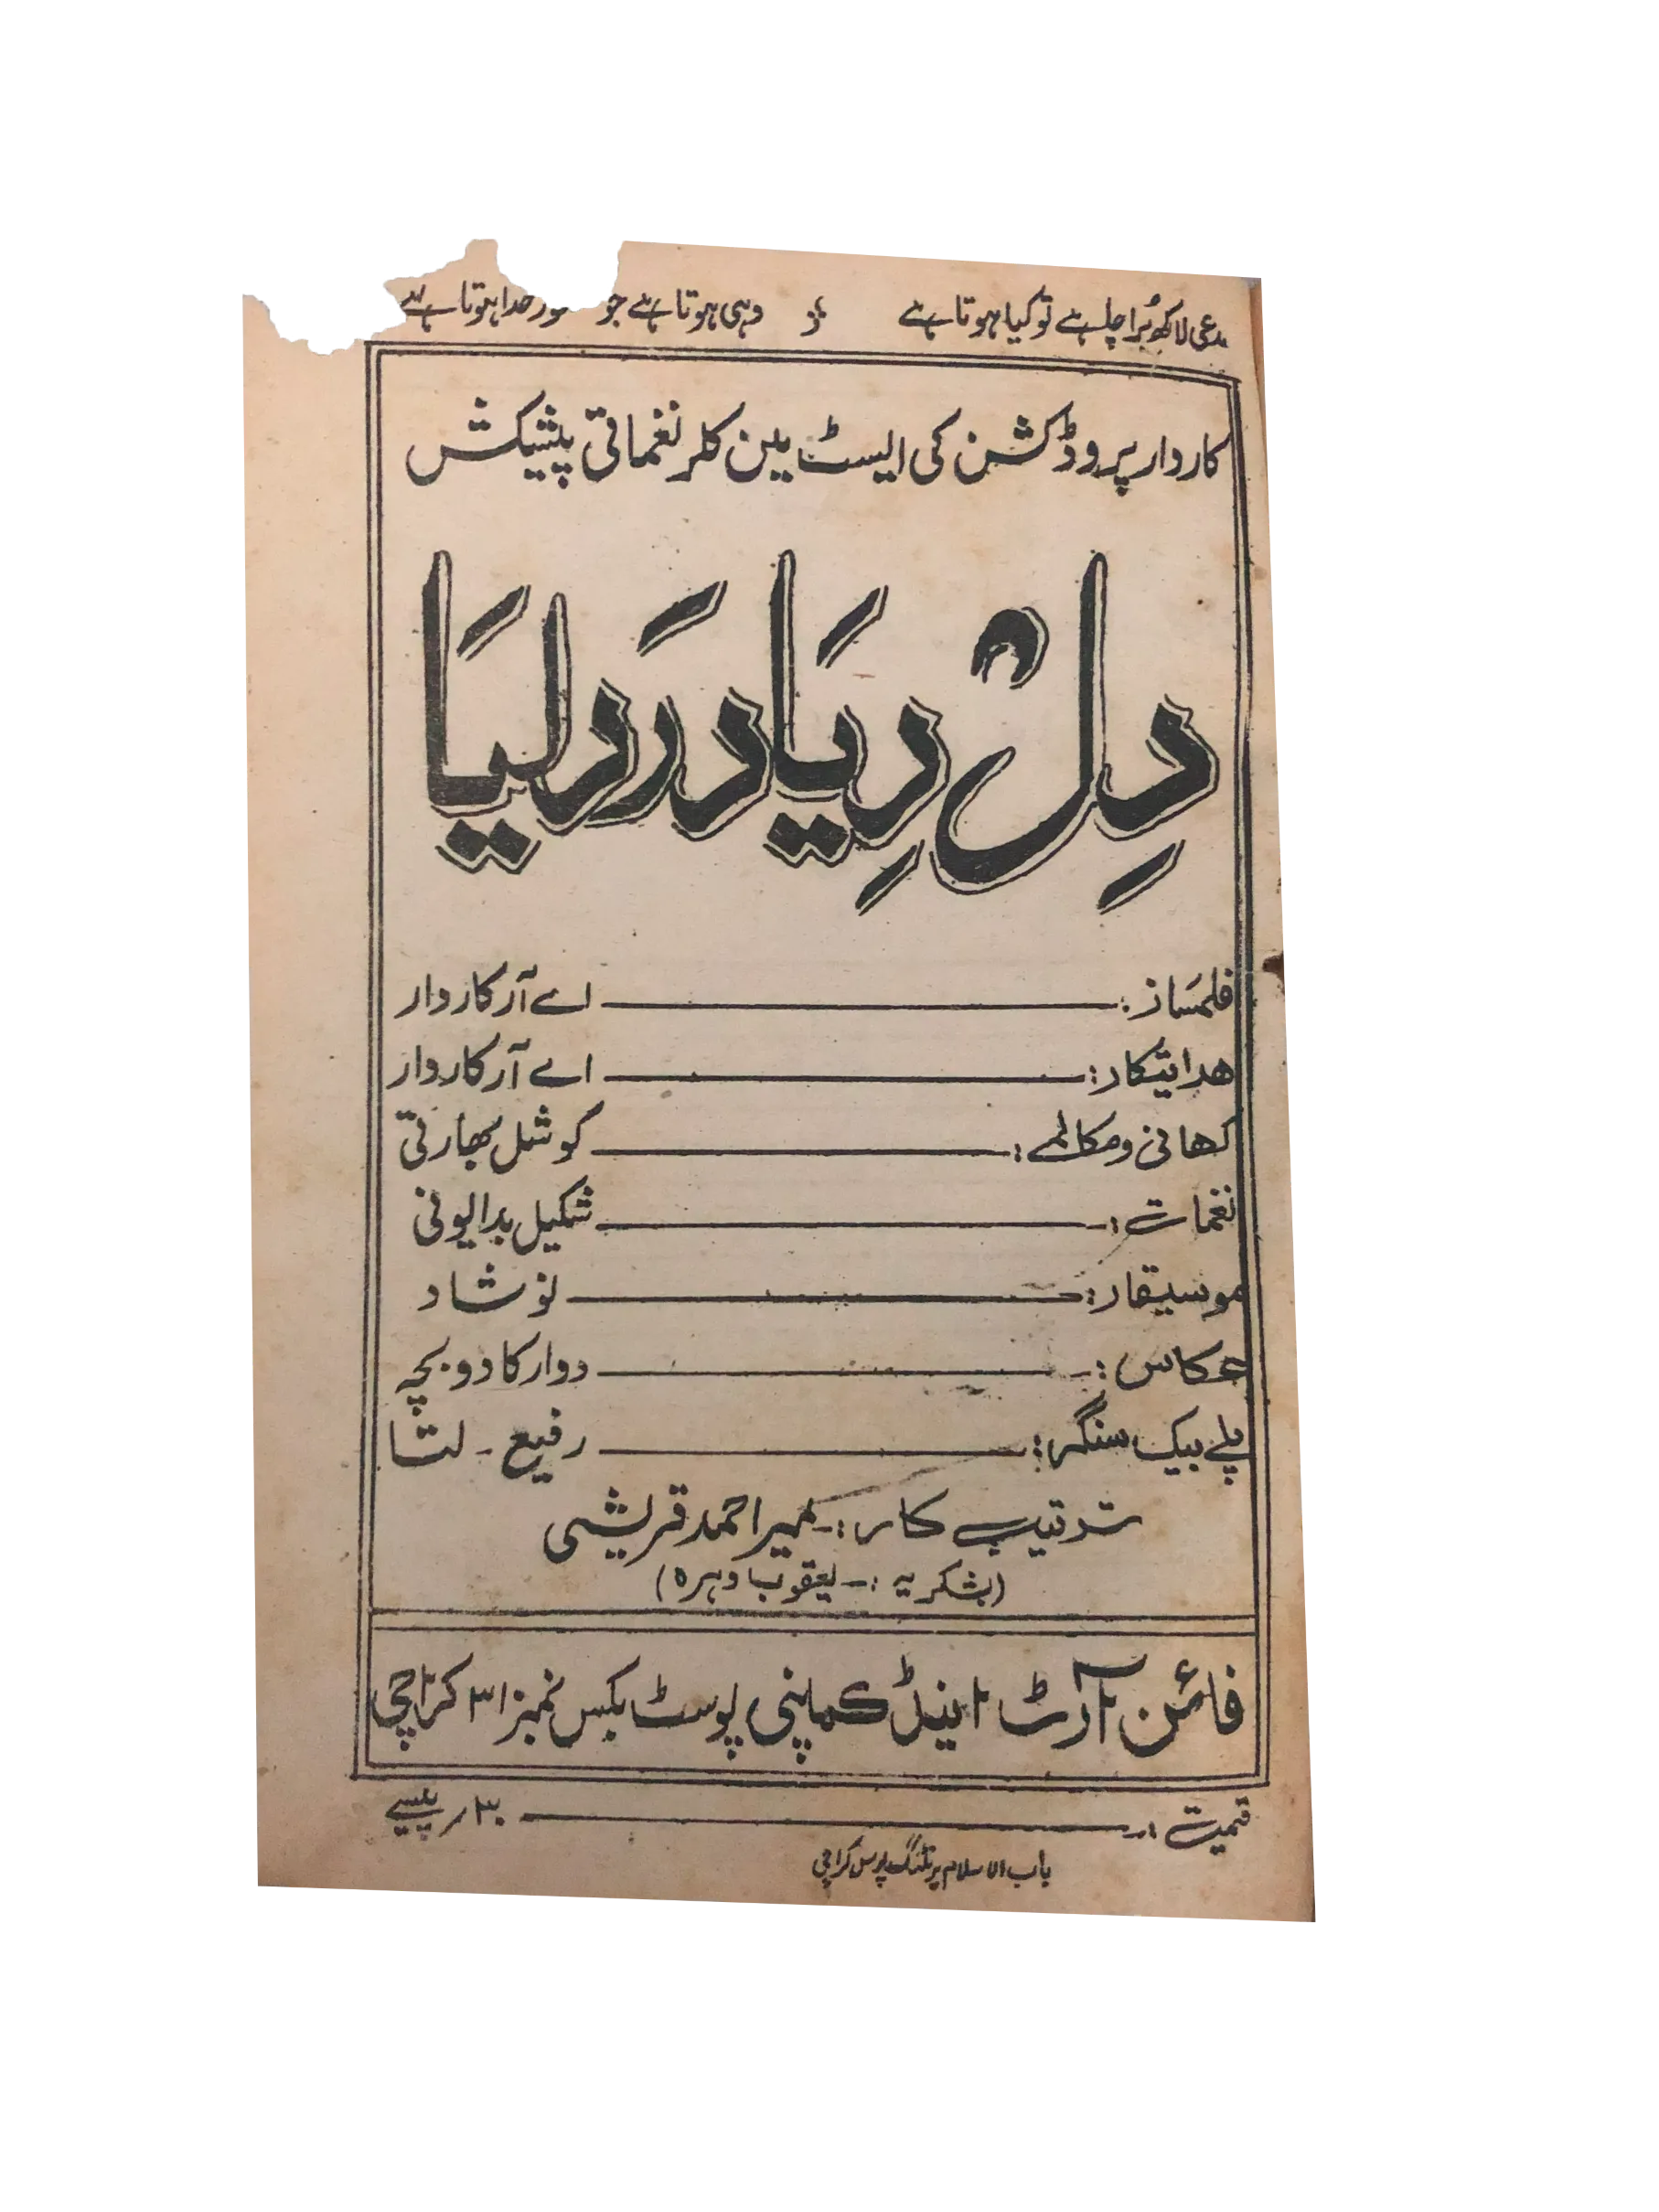 مدعی لاکھ بُرا چاہے تو کیا ہوتا ہے وہی ہوتا ہے جو خدا ہوتا ہے
کاردار پروڈکشن کی ایسٹ مین کلر نغماتی پیشکش
دِلْ دِیَا دَرَد لیَا
فلمسَاز: اے آر کاردار
ھدایتکار: اے آر کاردار
کہانی و مکالمے: کوشل بھارتی
نغمات: شکیل بدایونی
موسیقار: نوشاد
عکاس: دوارکا دوبچہ
پلے بیک سنگر: رفیع - لتا
ترتیب کار:- احمد قریشی
(بشکریہ:- یعقوب اوہرہ)
فائن آرٹ اینڈ کمپنی پوسٹ بکس نمبر ۳۱ کراچی
قیمت:- ۳۰؍ پیسے
باب الاسلام پرنٹنگ پریس کراچی